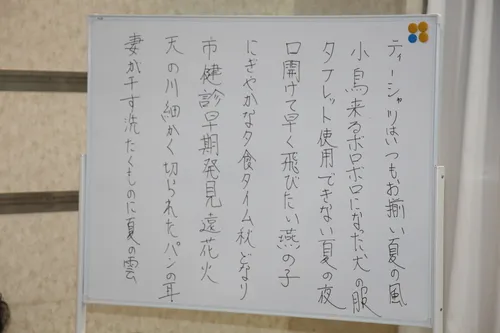 ティーシャツはいつもお揃い夏の風
小鳥来るボロボロになった犬の服
タブレット使用できない夏の夜
口開けて早く飛びたい燕の子
にぎやかな夕食タイム秋どなり
市健診早期発見遠花火
天の川細かく切られたパンの耳
妻が干す洗たくものに夏の雲